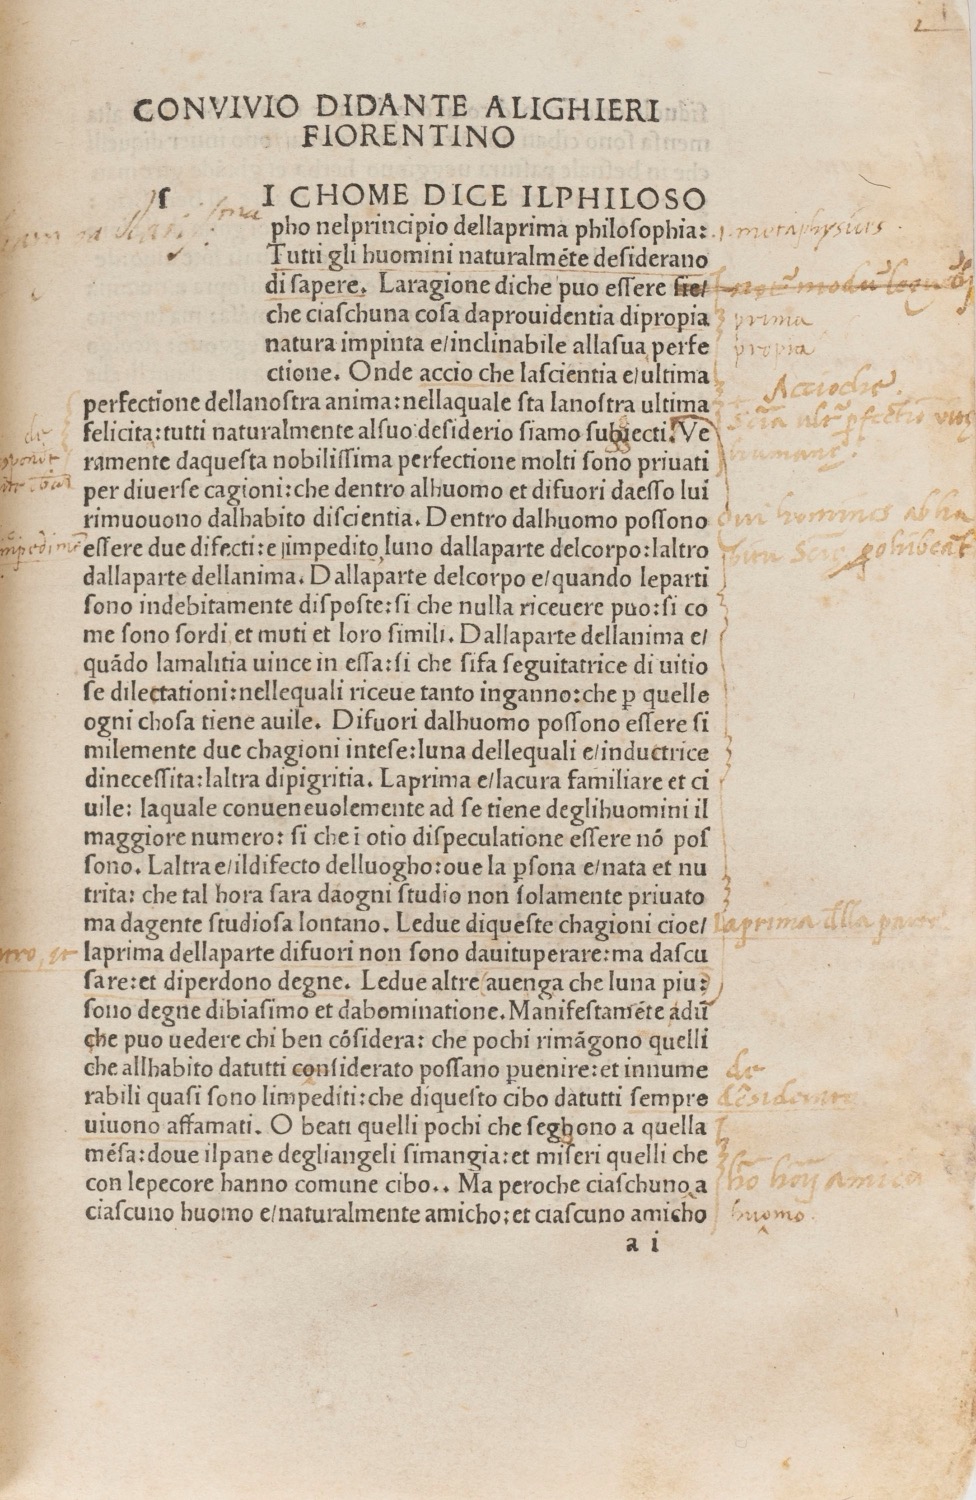 CONVIVIO DIDANTE ALIGHIERI
FIORENTINO
ſ I CHOME DICE ILPHILOSO
pho nelprincipio dellaprima philoſophia:
Tutti gli huomini naturalmẽte deſiderano
di ſapere. Laragione diche puo eſſere ſie/
che ciaſchuna coſa daprouidentia dipropia
prima
natura impinta e/inclinabile allaſua perfe
propia
ctione. Onde accio che laſcientia e/ultima
Accioche.
perfectione dellanoſtra anima:nellaquale ſta lanoſtra ultima
felicita:tutti naturalmente alſuo deſiderio ſiamo subiecti. Ve
de
ramente daqueſta nobiliſſima perfectione molti ſono priuati
per diuerſe cagioni:che dentro alhuomo et difuori daeſſo lui
rimuouono dalhabito diſcientia. Dentro dalhuomo poſſono
eſſere due difecti:e impedito luno dallaparte delcorpo:laltro
dallaparte dellanima. Dallaparte delcorpo e/quando leparti
ſono indebitamente diſpoſte:ſi che nulla riceuere puo:ſi co
me ſono ſordi et muti et loro ſimili. Dallaparte dellanima e/
quãdo lamalitia uince in eſſa:ſi che ſifa ſeguitatrice di uitio
ſe dilectationi:nellequali riceue tanto inganno:che ꝑ quelle
ogni choſa tiene auile. Difuori dalhuomo poſſono eſſere ſi
milemente due chagioni inteſe:luna dellequali e/inductrice
dineceſſita:laltra dipigritia. Laprima e/lacura familiare et ci
uile: laquale conueneuolemente ad ſe tiene deglihuomini il
maggiore numero: ſi che ĩ otio diſpeculatione eſſere nõ poſ
ſono. Laltra e/ildifecto delluogho:oue la ꝑſona e/nata et nu
trita: che tal hora ſara daogni ſtudio non ſolamente priuato
ma dagente ſtudioſa lontano. Ledue diqueſte chagioni cioe/
laprima dellaparte difuori non ſono dauituperare:ma daſcu
ſare:et diperdono degne. Ledue altre auenga che luna piu:
ſono degne dibiaſimo et dabominatione. Manifeſtamẽte adũ
che puo uedere chi ben cõſidera: che pochi rimãgono quelli
che allhabito datutti conſiderato poſſano ꝑuenire:et innume
de
rabili quaſi ſono limpediti:che diqueſto cibo datutti ſempre
uiuono affamati. O beati quelli pochi che ſeghono a quella
mẽſa:doue ilpane degliangeli ſimangia:et miſeri quelli che
con lepecore hanno comune cibo.. Ma peroche ciaſchuno a
ciaſcuno huomo e/naturalmente amicho:et ciaſcuno amicho
huomo.
a i